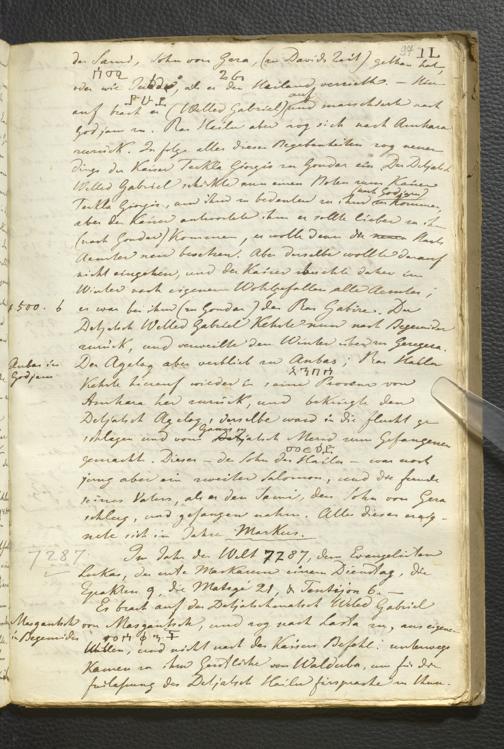 97 IL
der Sami, Sohn von Gera, (zu Davids Zeit) gethan hat,
oder wie Judas, als er den Heiland verrieth. — Hier-
auf brach er (Welled Gabriel) auf und marschierte nach
Godjam zu. Ras Hailu aber zog sich nach Amhara
zurück. In folge aller dieser Begebenheiten zog neuer
dings der Kaiser Teckla Giorgis zu Gondar ein. Der Detjatsch
Welled Gabriel schickte nun einen Boten zum Kaiser
Teckla Giorgis, um ihm zu bedeuten zu ihm (nach Godjam) zu kommen,
aber der Kaiser antwortete ihm er sollte lieber zu ihm
(nach Gondar) kommen, er wolle dann die
Aemter neu besetzen. Aber derselbe wollte darauf
nicht eingehen, und der Kaiser besetzte daher im
Winter nach eigenem Wohlgefallen alle Aemter;
1500. 6 es war bei ihm (zu Gondar) der Ras Gabire. Der
Detjatsch Welled Gabriel kehrte nun nach Begemider
zurück, und verweilte den Winter über zu
Anbas in Godjam Der Agelag aber verblieb zu Anbas; Ras Hailu
kehrte hierauf wieder in seine Provinz von
Amhara her zurück, und bekriegte den
Detjatsch Agelag; derselbe ward in die flucht ge-
schlagen und vom Detjatsch Merud zum Gefangenen
gemacht. Dieser — der Sohn des Hailu — war noch
jung aber ein zweiter Salomon, und die freude
seines Vaters, als er den Sami, den Sohn von Gera
schlug, und gefangen nahm. Alles dieses ereig-
nete sich im Jahre Markus.
7287. Im Jahr der Welt 7287, dem Evangelisten
Lukas, der erste Maskarem einen Dienstag, die
Epakten 9, die Matege 21, & Tentijon 6. —
Es brach auf der Detjatschmatsch Welled Gabriel
Masgantsch in Begemider von Masgantsch, und zog nach Lasta zu, aus eigenem
Willen, und nicht nach des Kaisers Befehl. unterwegs
kamen zu ihm Geistliche von Walduba, um für die
freilassung des Detjatsch Hailu fürsprache zu thun.